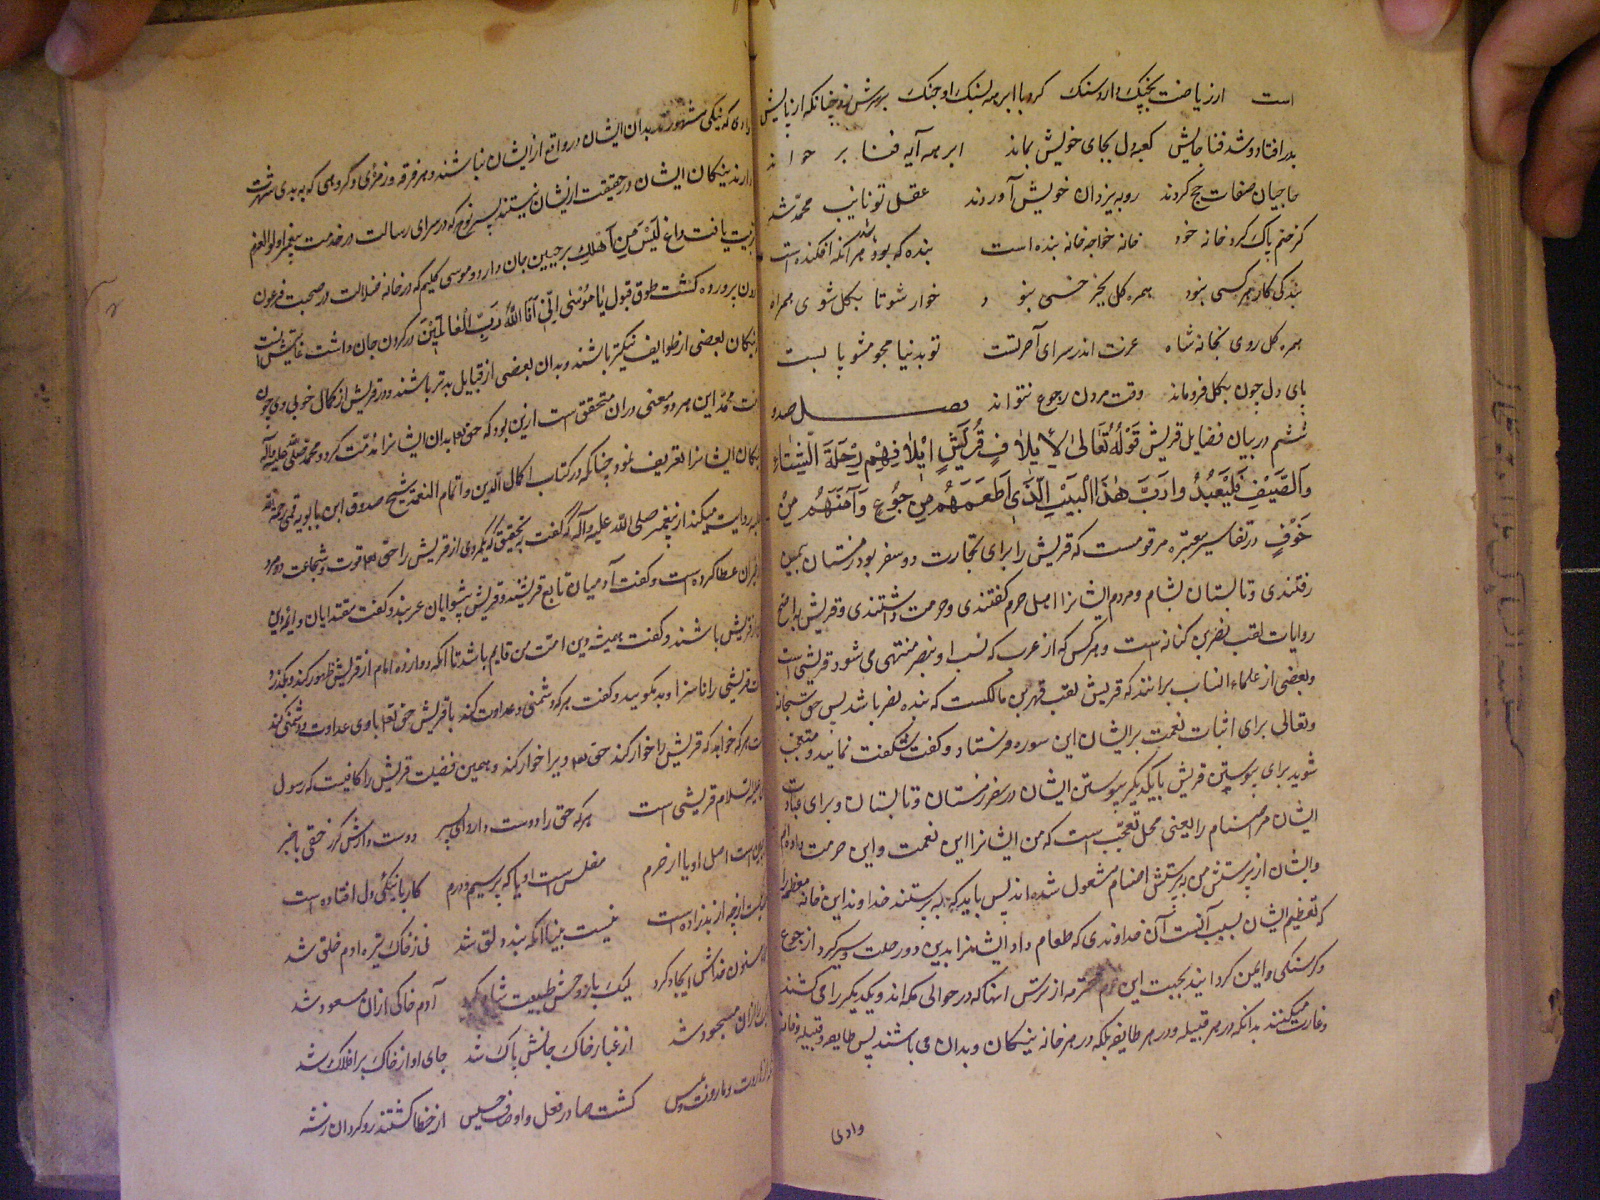 است از ریاضت بچنک دارو سنک کرد با ابرهه لسنک او جنک
بدر افتاد و شد فنا جایش کعبهٔ دل بجای خویش بماند ابرهه آیه فنا بر خواند
حاجیان صفات حج کردند رو به یزدان خویش آوردند عقل تو نایب محمد شد
کز صنم پاک کرد خانه خود خانه خواجه خانه بنده است بنده که بود هر آنکه افکنده است
بندگی کار هر کسی نبود همره کل بجز خسی نبود خوار شو تا بکل شوی همراه
همره کل روی بخانه شاه عزت اندر سرای آخرتست تو بدنیا مجو مشو پا بست
پای دل چون بکل فرو ماند وقت مردن رجوع نتواند فصل صد و
ششم در بیان فضایل قریش قوله تعالی لِإِيلَافِ قُرَيْشٍ إِيلَافِهِمْ رِحْلَةَ الشِّتَاءِ
وَالصَّيْفِ فَلْيَعْبُدُوا رَبَّ هَذَا الْبَيْتِ الَّذِي أَطْعَمَهُم مِن جُوعٍ وَآمَنَهُم مِنْ
خَوْفٍ در تفاسیر معتبره مرقومست که قریش را برای تجارت دو سفر بود زمستان بیمن
رفتندی و تابستان بشام و مردم ایشانرا اهل حرم گفتندی و حرمت داشتندی و قریش باصح
روایات لقب نضر بن کنانه است و هر کس که از عرب که نسب او بنضر منتهی می شود قریشی است
و بعضی از علماء انساب برانند که قریش لقب فهر بن مالکست که بنده نضر باشد پس حق سبحانه
و تعالی برای اثبات نعمت بر ایشان این سوره فرستاد و گفت شگفت نمایید و متعجب
شوید برای پیوستن قریش بایکدیگر پیوستن ایشان در سفر زمستان و تابستان و برای عبادت
ایشان مر اصنام را یعنی محل تعجب است که من ایشانرا این نعمت و این حرمت داده ام
و ایشان از پرستش من به پرستش اصنام مشغول شده اند پس باید که به پرستند خداوند این خانه معظمه را
که تعظیم ایشان بسبب آنست آن خداوندی که طعام داد ایشانرا بدین دو رحلت و سیر کرد از جوع
و کرسنکی و ایمن کردانید بجهت این حرم محترمه از ترس آنها که در حوالی مکه اند و یکدیگر را می کشند
و غارت میکنند بدانکه در هر قبیله و در هر طایفه بلکه در هر خانه نیکان و بدان می باشند پس طایفه و قبیله و خانه
وادی
که نیکی مشهورند بدان ایشان در واقع از ایشان نباشند و هر فرقه و زمرهٔ و کروهی که به بدی شهرت
دارند نیکان ایشان در حقیقت از یشان نیستند پسر نوح که در سرای رسالت در خدمت پیغمبر اولوالعزم
تربیت یافت داغ لَيْسَ مِنْ أَهْلِكَ بر جبین جان دارد و موسی کلیم که در خانه ضلالت در صحبت فرعون
دون پرورده کشت طوق قبول يَا مُوسَى إِنِّي أَنَا اللَّهُ رَبُّ الْعَالَمِينَ در کردن جان داشت
نیکان بعضی از طوایف نیکتر باشند و بدان بعضی از قبایل بدتر باشند و در قریش از کمال خوبی
محمد این هر دو معنی در ان متحقق است ازین بود که حق تعه بدان ایشانرا مذمت کرد و محمد صلی الله علیه و آله
نیکان ایشانرا تعریف نمود چنانکه در کتاب اکمال الدین و اتمام النعمة شیخ صدوق ابن بابویه قمی رحمه الله
علیه روایت میکند از پیغمبر صلی الله علیه و آله که گفت بتحقیق که یکمردی از قریش را حق تعه قوت و شجاعت دو مرد
عطا کرده است و گفت آدمیان تابع قریشند و قریش پیشوایان عربند و گفت مقتدایان و ائمه دین
از قریش باشند و گفت همیشه دین امت من قایم باشد تا آنکه دوازده امام از قریش ظهور کند و بگذرد
قریشی را ناسزا و بد مگویید و گفت هر که دشمنی و عداوت کند با قریش حق تعه با وی عداوت و دشمنی کند
هر که خواهد که قریش را خوار کند حق تعه ویرا خوار کند و همین فضیلت قریش را کافیست که رسول
علیه السلام قریشی است هر که حق را دوست دارد ای پسر دوست دارش کرز حقی باخبر
است اصل او یا از خرم مفلس است او یا که پر سیم و درم کار با نیکی دل افتاده است
از چه از بد زاده است نیست بینا آنکه بنده لق شد نی ز خاک تیره آدم خلق شد
خداش ایجاد کرد لیک باز وحش طبیعت شاد کرد آدم خاکی ازان مسعود شد
ازان مسجود شد از غبار خاک جانش پاک شد جای او از خاک بر افلاک شد
گشت صادر فعل و اوصاف خسیس از خطا گشتند رو گردان